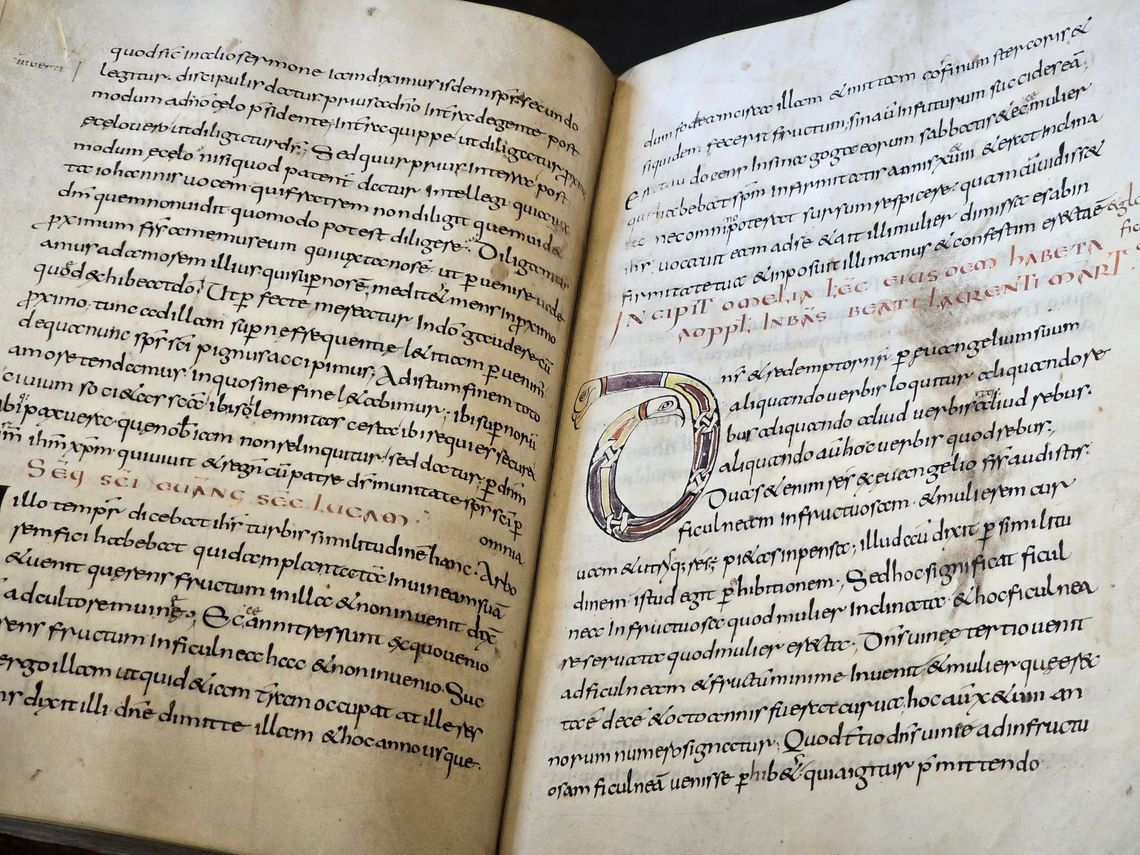 quod sic In alio sermone Iam diximus isdem sps secundo
legitur discipulis datur prius a dno In terra degente post
modum a dno celo p̄sidente, In terra quippe ut diligatur proxim
e celo vero ut diligatur ds; Sed quur prius In terra post
modum e celo nisi quod patent datur intellegi quia iux
ta iohannis vocem qui fratrem non diligit quem uid&
dm quem non uidit quomodo potest diligere; Diligamus
proximum frs amemus eum qui iuxta nos ē. ut peruenire ual
amus ad amorem illius qui sup nos ē. medit&ur mens In proximo
quod exhibeat do; Ut pfecte mereatur In do gaudere cū
proximo. tunc ad illam supne frequentie l&itiam peruenim
de qua nunc sps sci pignus accipimus; Ad istum finem toto
amore tendamus in quo sine fine l&abimur; ibi supnorū
ciuium soci&as sca. ibi sollemnitas certa. ibi requies secura
ibi pax uera. que nob iam non relinquitur. sed datur p dnm
nrm ihm xpm qui uiuit & regn̄ cū patre ds In unitate sps sci p
omnia
Seq sci euang sec lucam.
illo tempr̄ dicebat ihs turbis similitudinē hanc. Arbo
rem fici habebat quidam plantata In uinea sua
& uenit querens fructum in illa & non inuenit dix
ad cultorem uinę; &ce anni tres sunt ex quo uenio
rens fructum In ficulnea hac & non inuenio. Suc
ergo illam ut quid &iam tram occupat at ille res
ns dixit illi dne dimitte illam & hoc anno usque.
dum fodiam circa illam & mittam cofinum stercoris &
siquidem fecerit fructum, sin aū In futurum succides eā,
docens In sinagoga eorum sabbatis & ecce mulier
habebat spm Infirmitatis annis xuiii & erat Inclina
nec omnino poterat sursum respicere. quam cū uidiss&
ihs. uocauit eam ad se & ait illi mulier dimissa es ab in
firmitate tua & Inposuit illi manus & confestim erecta ē
INCIPIT OMELIA LEC EIUSDEM HABETA
AD PPL IN BAS BEATI LAURENTI MART.
ns & redemptor nr p euangelium suum
aliquando uerbis loquitur aliquando re
bus aliquando aliud uerbis atq aliud rebus.
aliquando aū hoc uerbis quod rebus;
Duas & enim res ex euangelio frs audistis.
ficulneam Infructuosam. & mulierem cur
uam & utriq rei pi&as inpensa; illud ecū dixit p similitu
dinem istud egit p exhibitionem; Sed hoc significat ficul
nea Infructuosa quod mulier Inclinata & hoc ficulnea
reseruata quod mulier erecta; Dns uinee tertio uenit
ad ficulneam & fructū minime Inuenit & mulier que erec
ta ē. decē & octo annis fuerat curua. hoc aū x & uiii an
norum numero signatur; Quod tertio dns uinee ad infructu
osam ficulneā uenisse phib&; quia igitur pmittendo